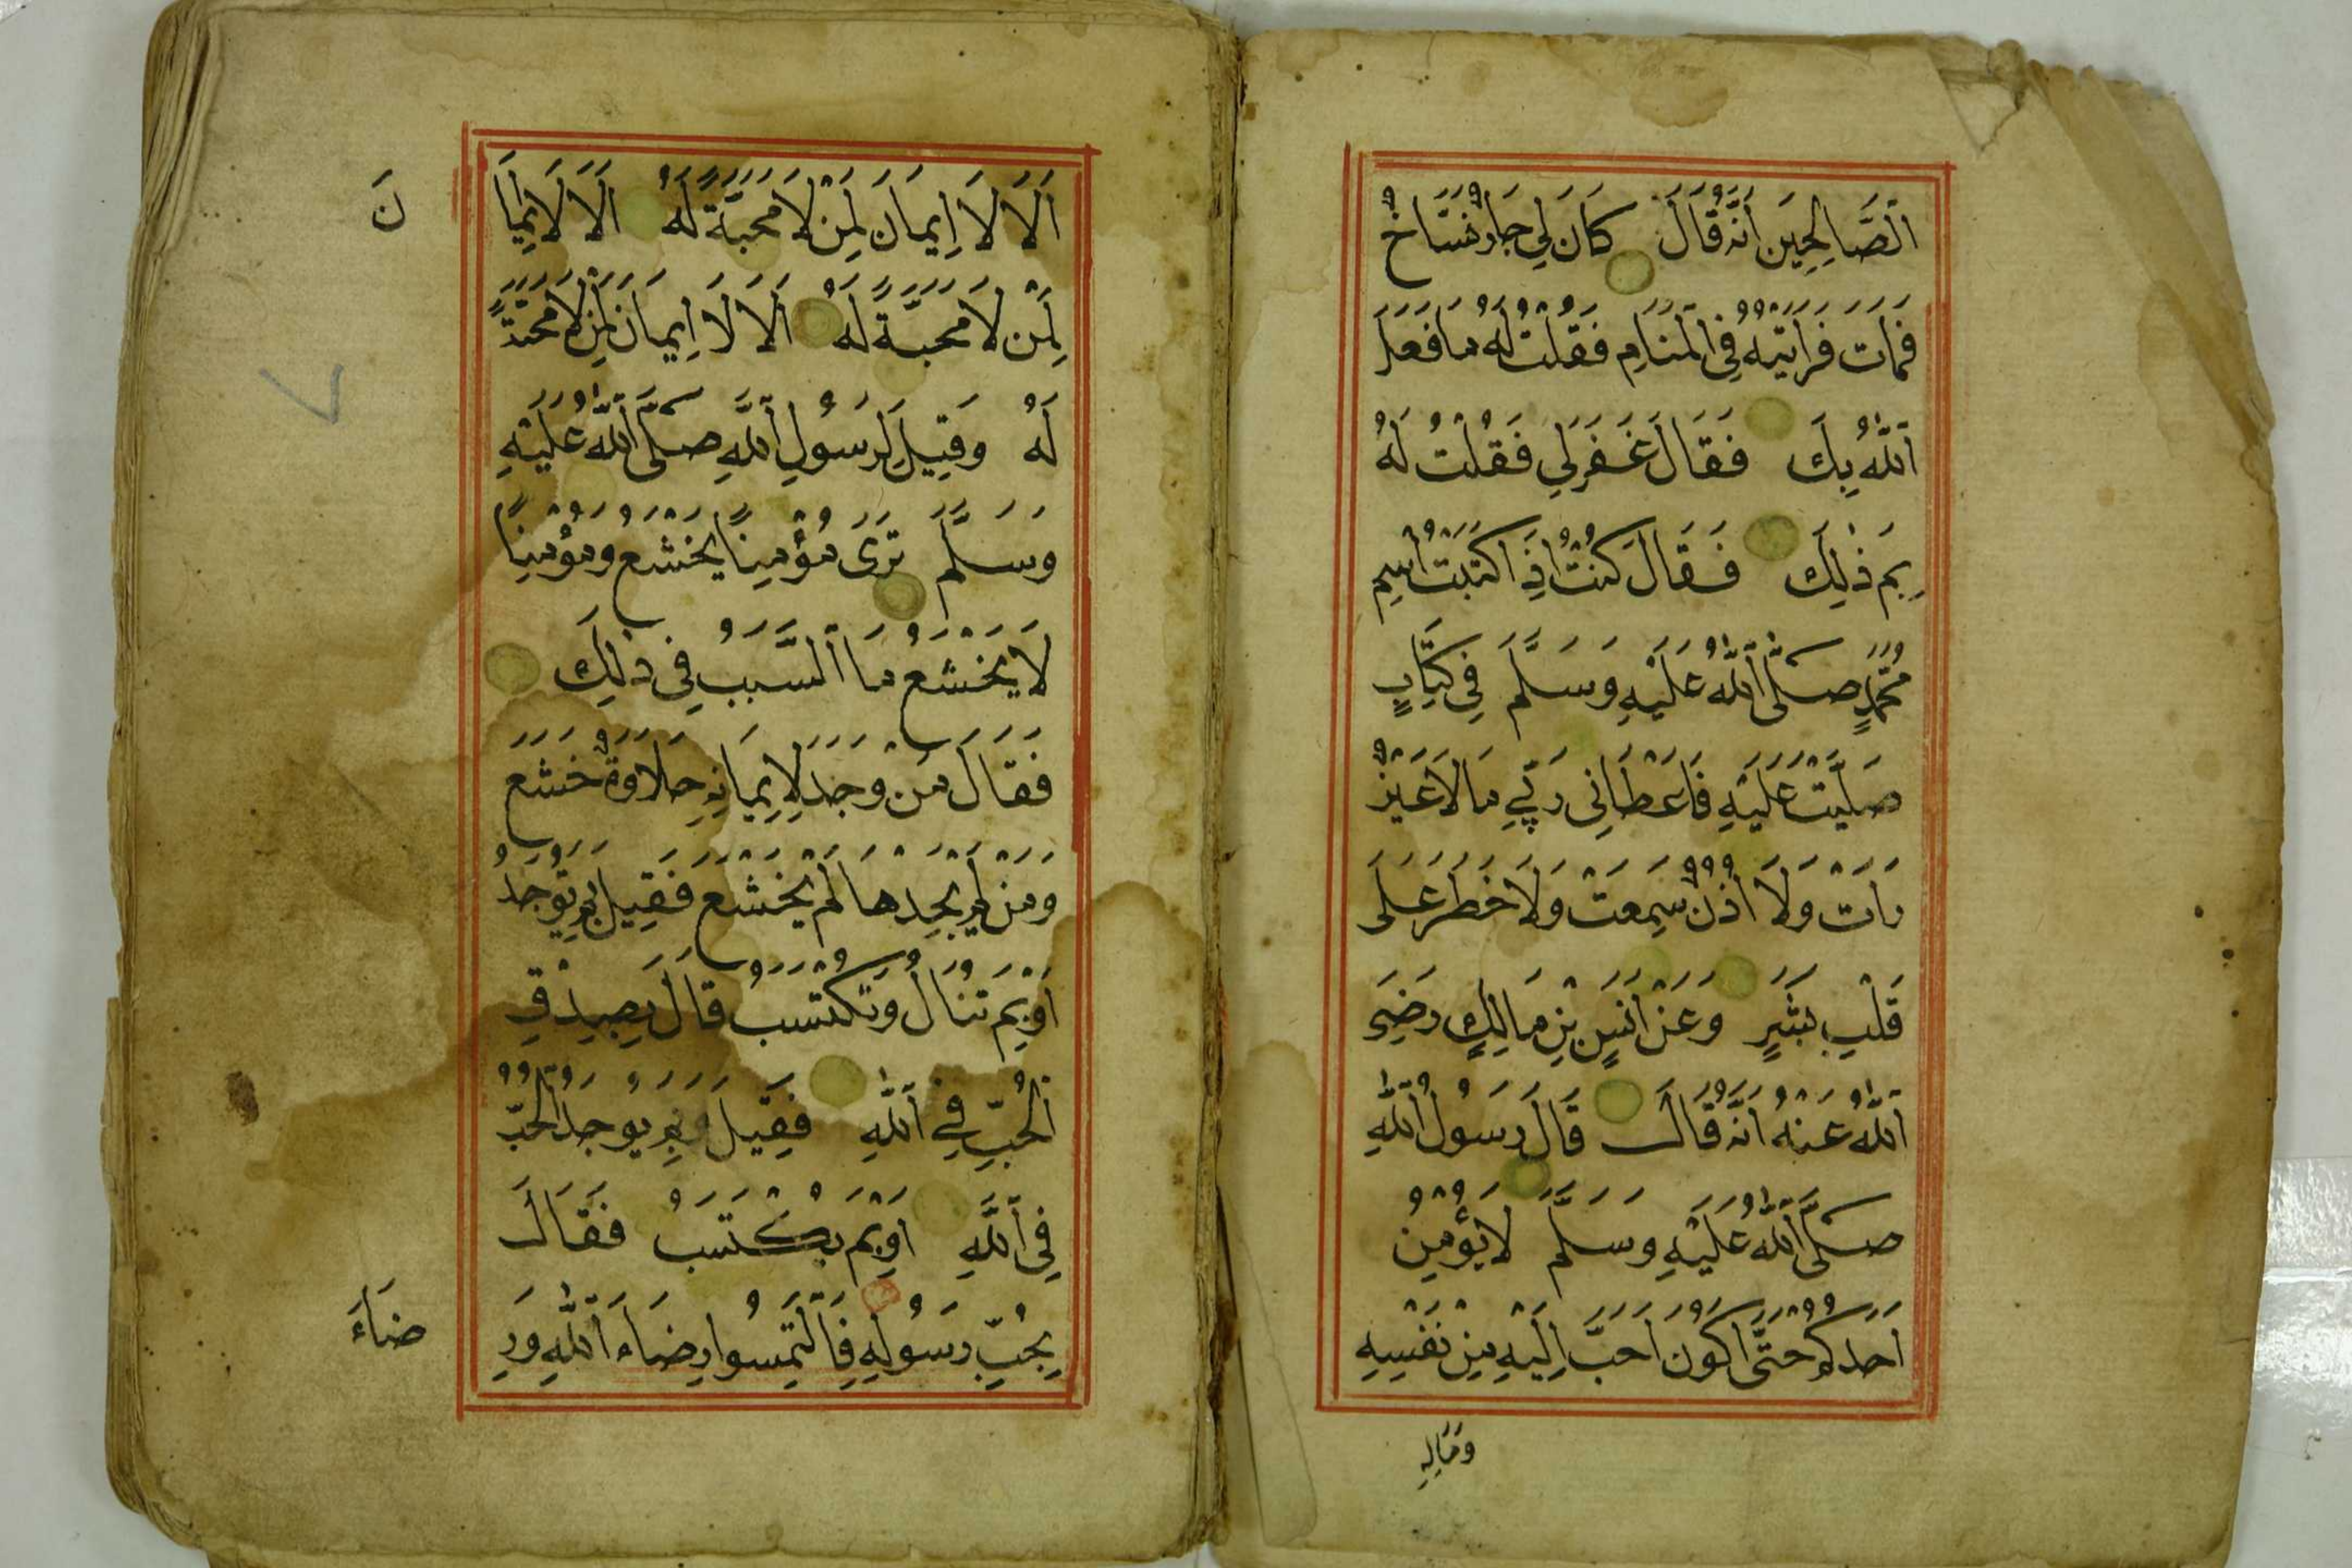 اَلصَّالِحِينَ اَنَّهُ قَالَ كَانَ لِي جَارٌ نَسَّاخٌ
فَمَاتَ فَرَاَيْتُهُ فِي الْمَنَامِ فَقُلْتُ لَهُ مَا فَعَلَ
اَللّٰهُ بِكَ فَقَالَ غَفَرَ لِي فَقُلْتُ لَهُ
بِمَ ذٰلِكَ فَقَالَ كُنْتُ اِذَا كَتَبْتُ اسْمَ
مُحَمَّدٍ صَلَّى اللّٰهُ عَلَيْهِ وَسَلَّمَ فِي كِتَابٍ
صَلَّيْتُ عَلَيْهِ فَاَعْطَانِي رَبِّي مَا لَا عَيْنٌ
رَاَتْ وَلَا اُذُنٌ سَمِعَتْ وَلَا خَطَرَ عَلَى
قَلْبِ بَشَرٍ وَعَنْ اَنَسِ بْنِ مَالِكٍ رَضِيَ
اَللّٰهُ عَنْهُ اَنَّهُ قَالَ قَالَ رَسُولُ اللّٰهِ
صَلَّى اللّٰهُ عَلَيْهِ وَسَلَّمَ لَا يُؤْمِنُ
اَحَدُكُمْ حَتَّى اَكُونَ اَحَبَّ اِلَيْهِ مِنْ نَفْسِهِ
وَمَالِهِ
اَلَا لَا اِيمَانَ لِمَنْ لَا مَحَبَّةَ لَهُ اَلَا لَا اِيمَا
نَ
لِمَنْ لَا مَحَبَّةً لَهُ اَلَا لَا اِيمَانَ لِمَنْ لَا مَحَبَّةً
لَهُ وَقِيلَ لِرَسُولِ اللّٰهِ صَلَّى اللّٰهُ عَلَيْهِ
وَسَلَّمَ تَرَى مُؤْمِنًا يَخْشَعُ وَمُؤْمِنًا
لَا يَخْشَعُ مَا السَّبَبُ فِي ذٰلِكَ
فَقَالَ مَنْ وَجَدَ لِاِيمَانِهِ حَلَاوَةً خَشَعَ
وَمَنْ لَمْ يَجِدْهَا لَمْ يَخْشَعْ فَقِيلَ بِمَ تُوجَدُ
اَوْ بِمَ تُنَالُ وَتُكْتَسَبُ قَالَ بِصِدْقِ
اَلْحُبِّ فِي اللّٰهِ فَقِيلَ وَبِمَ يُوجَدُ الْحُبُّ
فِي اللّٰهِ اَوْ بِمَ يُكْتَسَبُ فَقَالَ
بِحُبِّ رَسُولِهِ فَالْتَمِسُوا رِضَاءَ اللّٰهِ وَرِ
ضَاءَ